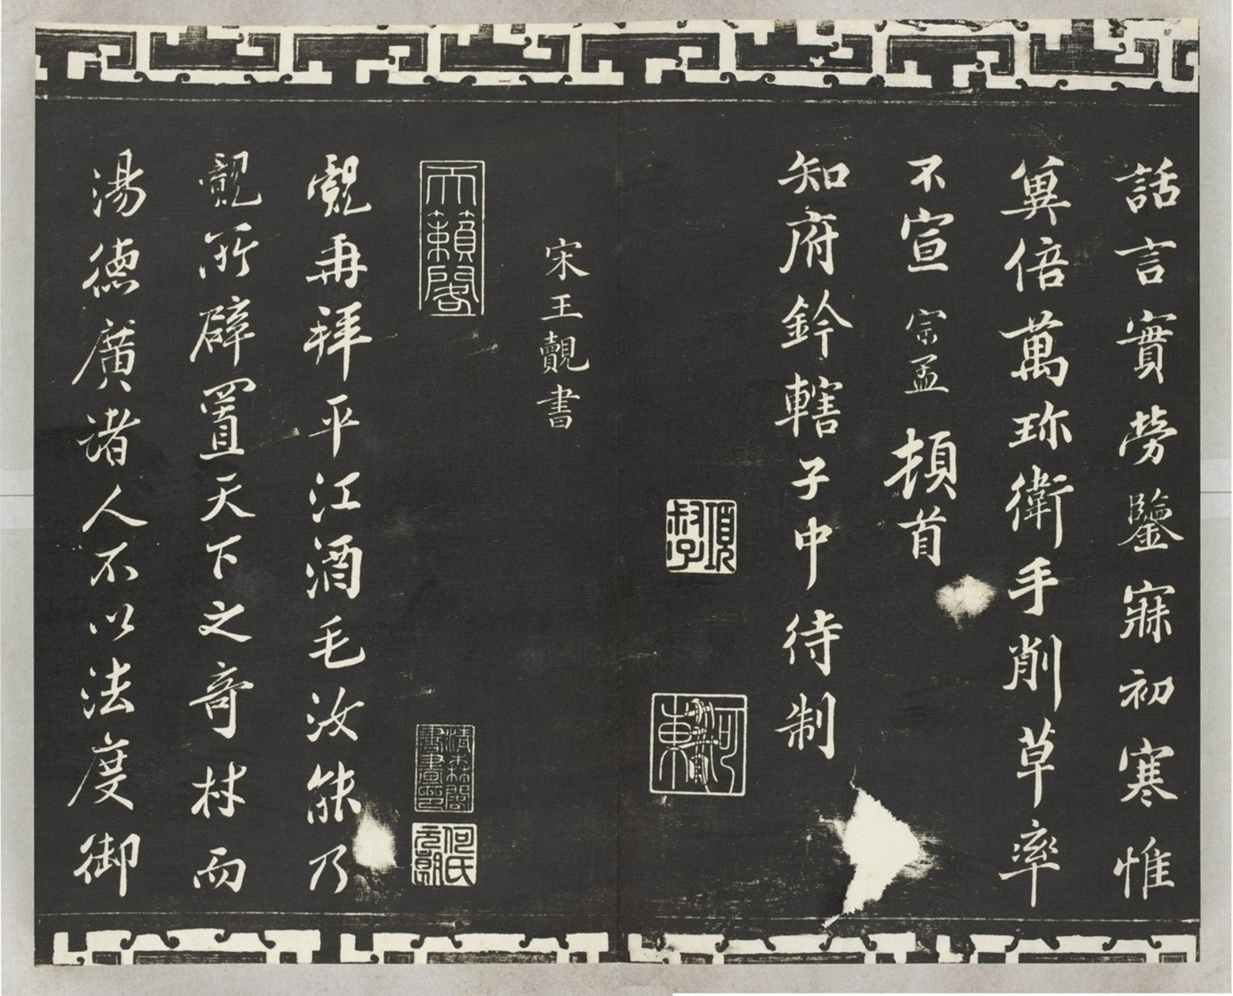 話言實勞鑒寐初寒惟
冀倍萬珎衛手削草率
不宣 宗孟 頓首
知府鈐轄子中待制
項叔子
河東
宋王覿書
天籟閣
清森閣書畫印
何氏元朗
覿再拜平江酒毛汝能乃
覿所辟置天下之奇材而
湯德廣諸人不以法度御